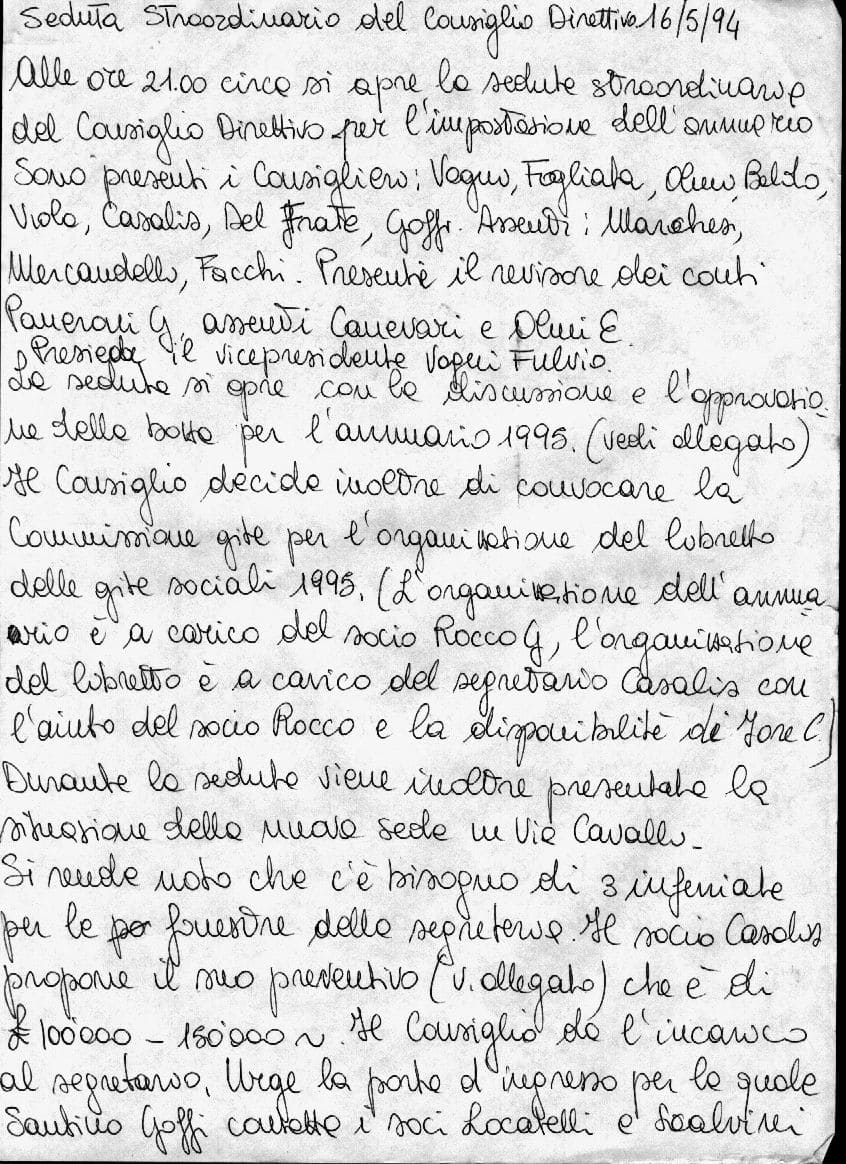 Seduta Straordinario del Consiglio Direttivo 16/5/94
Alle ore 21.00 circa si apre la seduta straordinaria
del Consiglio Direttivo per l'impostazione dell'annuario
Sono presenti i Consiglieri: Vagni, Fogliata, Olini, Baldo,
Viola, Casalis, Del Frate, Goffi. Assenti: Marchesi,
Mercandelli, Facchi. Presente il revisore dei conti
Paneroni G, assenti Canevari e Olini E.
Presiede il vicepresidente Vagni Fulvio.
La seduta si apre con la discussione e l'approvazio
ne della bozza per l'annuario 1995. (vedi allegato)
Il Consiglio decide inoltre di convocare la
Commissione gite per l'organizzazione del libretto
delle gite sociali 1995. (L'organizzazione dell'annua
ario è a carico del socio Rocco G, l'organizzazione
del libretto è a carico del segretario Casalis con
l'aiuto del socio Rocco e la disponibilità di Jore C.)
Durante la seduta viene inoltre presentata la
situazione della nuova sede in Via Cavallo_
Si rende noto che c'è bisogno di 3 inferiate
per le finestre della segreteria. Il socio Casalis
propone il suo preventivo (v. allegato) che è di
£ 100'000 - 150'000 ~. Il Consiglio da l'incarico
al segretario. Urge la porta d'ingresso per la quale
Santino Goffi contatta i soci Locatelli e Scalvini